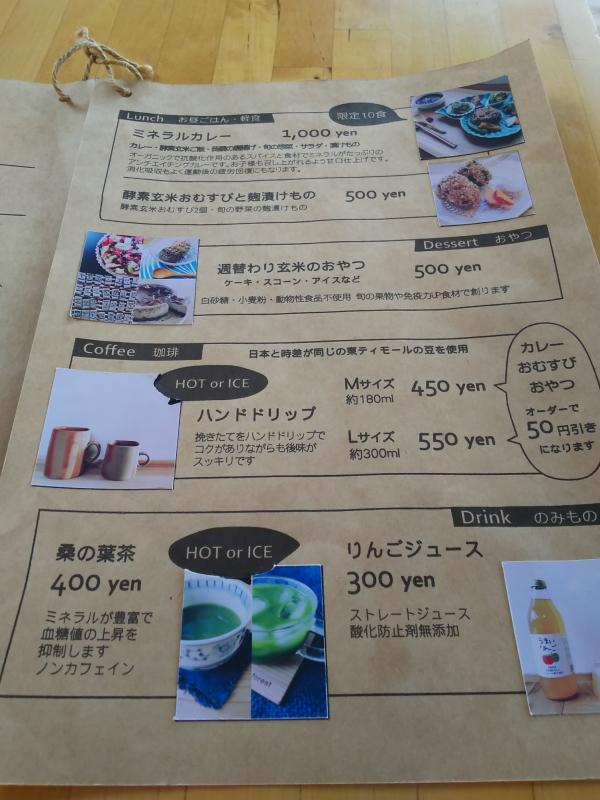 Lunch お昼ごはん・軽食
限定10食
ミネラルカレー 1,000 yen
オーガニックで抗酸化作用のあるスパイスと食材でミネラルがたっぷりの
アンチエイチングカレーです。お子様も召し上がれるよう甘口仕上げです。
消化吸収もよく運動後の疲労回復にもなります。
酵素玄米おむすびと麹漬けもの 500 yen
酵素玄米おむすび2個・旬の野菜の麹漬けもの
Dessert おやつ
週替わり玄米のおやつ 500 yen
ケーキ・スコーン・アイスなど
白砂糖・小麦粉・動物性食品不使用 旬の果物や免疫力UP食材で創ります
Coffee 珈琲
日本と時差が同じの東ティモールの豆を使用
HOT or ICE
ハンドドリップ
挽きたてをハンドドリップで
コクがありながらも後味が
スッキリです
Mサイズ 450 yen
約180ml
Lサイズ 550 yen
約300ml
カレー
おむすび
おやつ
オーダーで
50円引き
になります
Drink のみもの
桑の葉茶
400 yen
HOT or ICE
ミネラルが豊富で
血糖値の上昇を
抑制します
ノンカフェイン
りんごジュース
300 yen
ストレートジュース
酸化防止剤無添加
forest